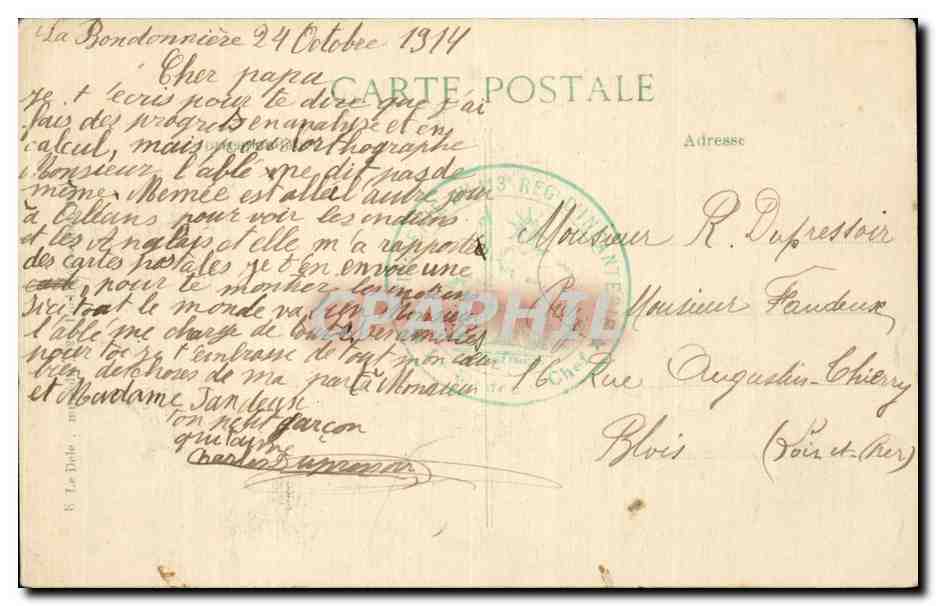 La Bondonnière 24 Octobre 1914
Cher papa
CARTE POSTALE
je t'écris pour te dire que j'ai
fais des progrets en analyse et en
calcul, mais pour l'orthographe
Monsieur l'abbé me dit pas de
même. Memée est allée l'autre jour
à Orléans pour voir les indiens
et les Anglais, et elle m'a rapporté
des cartes postales, je t'en envoie une
pour te montrer les
Ici tout le monde va bien Monsieur
l'abbé me charge de toutes ses amitiés
pour toi je t'embrasse de tout mon cœur
bien des choses de ma part à Monsieur
et Madame
ton petit garçon
qui t'aime
Charles Dupressoir
Adresse
Monsieur R. Dupressoir
Monsieur Fandeux
16 Rue Augustin-Thierry
Blois (Loir-et-Cher)
REGT INFANTERIE
CPAPHIL
E. Le Dele